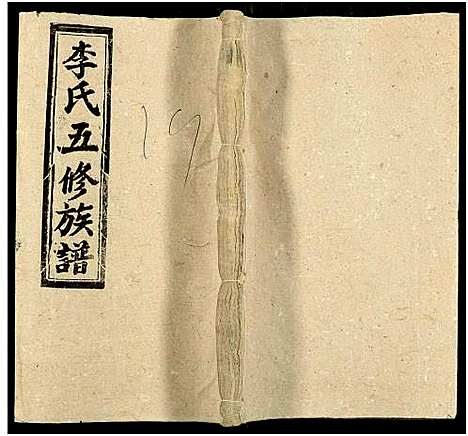 李氏五修族譜
19